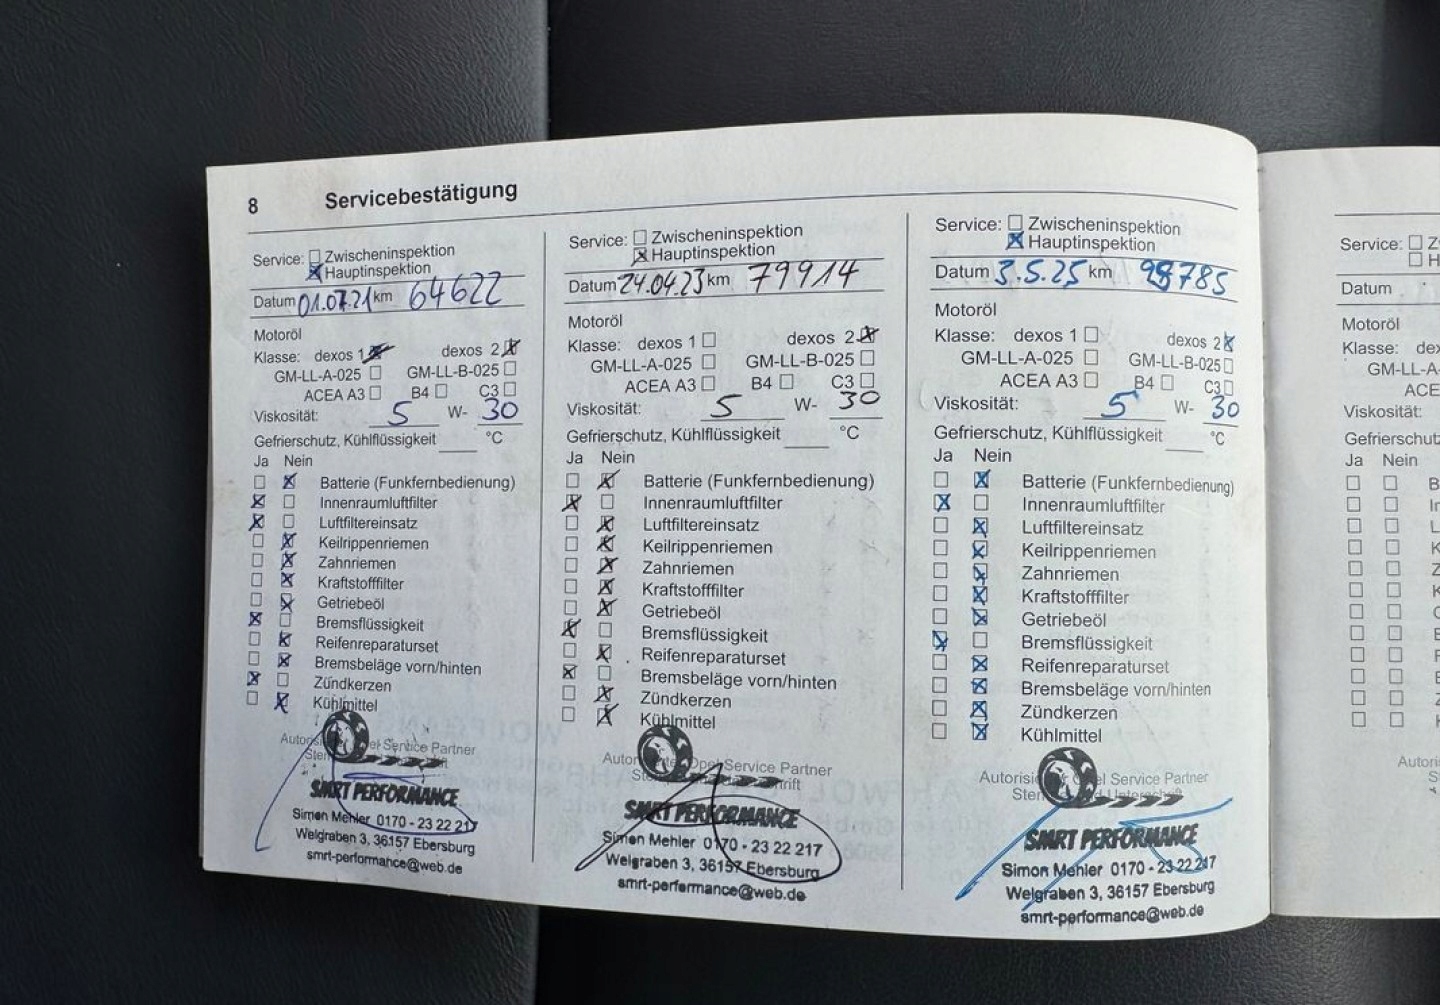 8 Servicebestätigung
Service: Zwischeninspektion
Hauptinspektion
Datum 01.07.21 km 64622
Motoröl
Klasse: dexos 1 dexos 2
GM-LL-A-025 GM-LL-B-025
ACEA A3 B4 C3
Viskosität: 5 W- 30
Gefrierschutz, Kühlflüssigkeit °C
Ja Nein
Batterie (Funkfernbedienung)
Innenraumluftfilter
Luftfiltereinsatz
Keilrippenriemen
Zahnriemen
Kraftstofffilter
Getriebeöl
Bremsflüssigkeit
Reifenreparaturset
Bremsbeläge vorn/hinten
Zündkerzen
Kühlmittel
Service Partner
SMRT PERFORMANCE
Simon Mehler 0170 - 23 22 217
Welgraben 3, 36157 Ebersburg
smrt-performance@web.de
Service: Zwischeninspektion
Hauptinspektion
Datum 24.04.23 km 79914
Motoröl
Klasse: dexos 1 dexos 2
GM-LL-A-025 GM-LL-B-025
ACEA A3 B4 C3
Viskosität: 5 W- 30
Gefrierschutz, Kühlflüssigkeit °C
Ja Nein
Batterie (Funkfernbedienung)
Innenraumluftfilter
Luftfiltereinsatz
Keilrippenriemen
Zahnriemen
Kraftstofffilter
Getriebeöl
Bremsflüssigkeit
Reifenreparaturset
Bremsbeläge vorn/hinten
Zündkerzen
Kühlmittel
Opel Service Partner
SMRT PERFORMANCE
Simon Mehler 0170 - 23 22 217
Welgraben 3, 36157 Ebersburg
smrt-performance@web.de
Service: Zwischeninspektion
Hauptinspektion
Datum 3.5.25 km 98785
Motoröl
Klasse: dexos 1 dexos 2
GM-LL-A-025 GM-LL-B-025
ACEA A3 B4 C3
Viskosität: 5 W- 30
Gefrierschutz, Kühlflüssigkeit °C
Ja Nein
Batterie (Funkfernbedienung)
Innenraumluftfilter
Luftfiltereinsatz
Keilrippenriemen
Zahnriemen
Kraftstofffilter
Getriebeöl
Bremsflüssigkeit
Reifenreparaturset
Bremsbeläge vorn/hinten
Zündkerzen
Kühlmittel
Service Partner
SMRT PERFORMANCE
Simon Mehler 0170 - 23 22 217
Welgraben 3, 36157 Ebersburg
smrt-performance@web.de
Service:
Datum
Motoröl
Klasse:
Viskosität:
Ja Nein